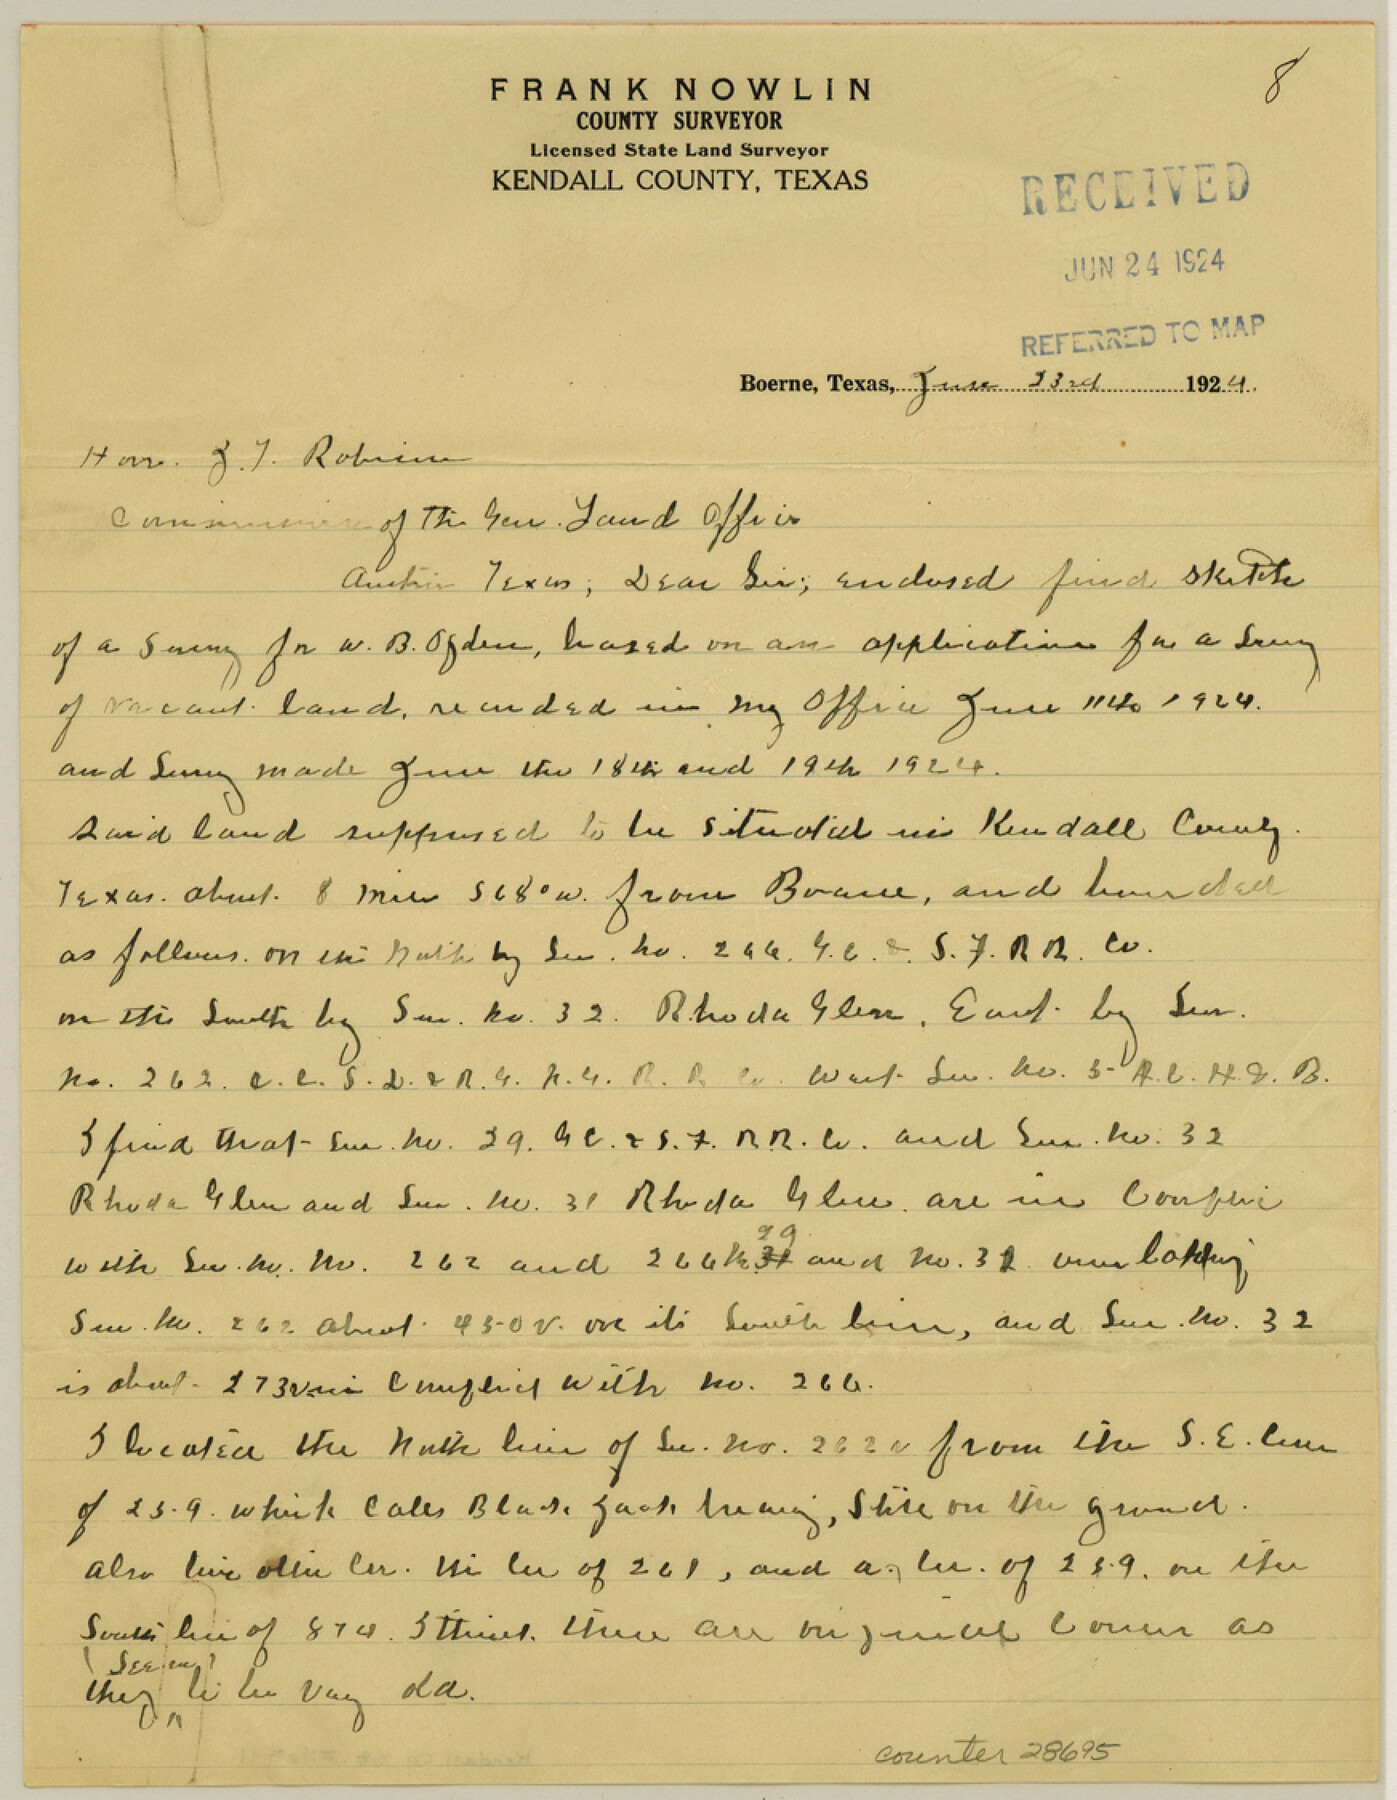 8
FRANK NOWLIN
COUNTY SURVEYOR
Licensed State Land Surveyor
KENDALL COUNTY, TEXAS
RECEIVED
JUN 24 1924
REFERRED TO MAP
Boerne, Texas, June 23rd 1924.
Hon. J. T. Robison
Commissioner of the Gen. Land Office
Austin Texas; Dear Sir; enclosed find sketch
of a Survey for W. B. Ogden, based on an application for a Survey
of vacant land, recorded in my Office June 11th 1924.
and Survey made June the 18th and 19th 1924.
Said land supposed to be situated in Kendall County.
Texas. about 8 miles S 68° W. from Boerne, and bounded
as follows. on the North by Sur. No. 266. G.C. & S.F. RR. Co.
on the South by Sur. No. 32. Rhoda Glen, East by Sur.
No. 262. C.C.S.D. & R.G.N.G. R.R. Co. West Sur. No. 5
I find that Sur. No. 29. G C. & S.F. R.R. Co. and Sur. No. 32
Rhoda Glen and Sur. No. 31 Rhoda Glen are in Conflict
with Sur. No. No. 262 and 266 No. 29 and No. 32 over lapping
Sur. No. 262 about 450 v. on its South line, and Sur. No. 32
is about 273 v. in Conflict with No. 266.
I located the North line of Sur. No. 262 from the S.E. Corner
of 259. which Calls Black Jack bearing, Still on the ground.
also two other Cor. the Cor of 261, and a Cor. of 259. on the
South line of 874. I think these are original Corners as
they (Seem) to be very old.
counter 28695